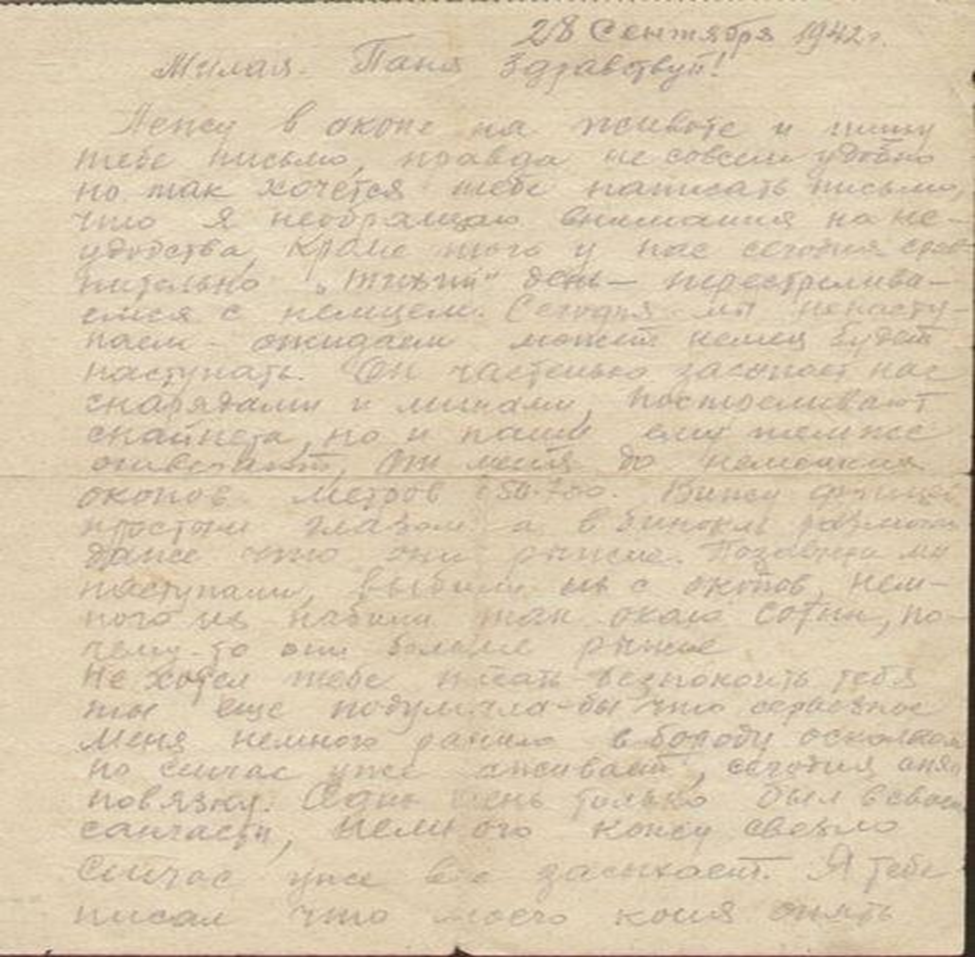 28 Сентября 1942г.
Милая Паня Здравствуй!
Лежу в окопе на животе и пишу
тебе письмо, правда не совсем удобно
но так хочется тебе написать письмо,
что я необращаю внимания на не-
удобства, Кроме того у нас сегодня срав
нительно „тихий" день — перестрелива-
емся с немцем. Сегодня мы ненасту-
паем - ожидаем может немец будет
наступать. Он частенько засыпает нас
снарядами и минами, постреливают
снайпера, но и наши ему темже
отвечают, От меня до немецких
окопов метров Вижу фрицев
простым глазом а в бинокль
даже что они рыжие. Позавчера мы
наступали, выбили их с окопов, нем-
ного их набили так около сотни, по-
чему-то они больше рыжие
Не хотел тебе писать безпокоить тебя
ты еще подумала-бы что серьезное
меня немного ранило в бороду осколком
но сичас уже заживает, сегодня снял
повязку. Один день только был в своей
санчасти, немного кожу свезло
Сичас уже все засыхает. Я тебе
писал что моего коня опять